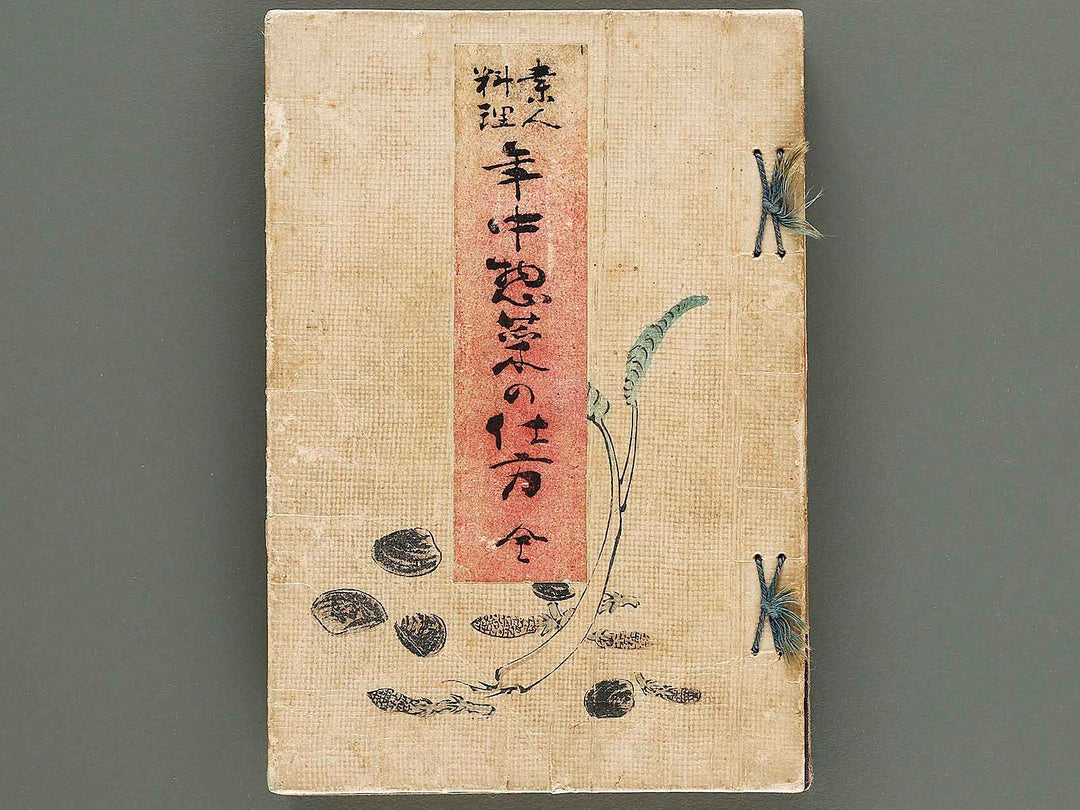 素人
料理
年中惣菜の仕方 全